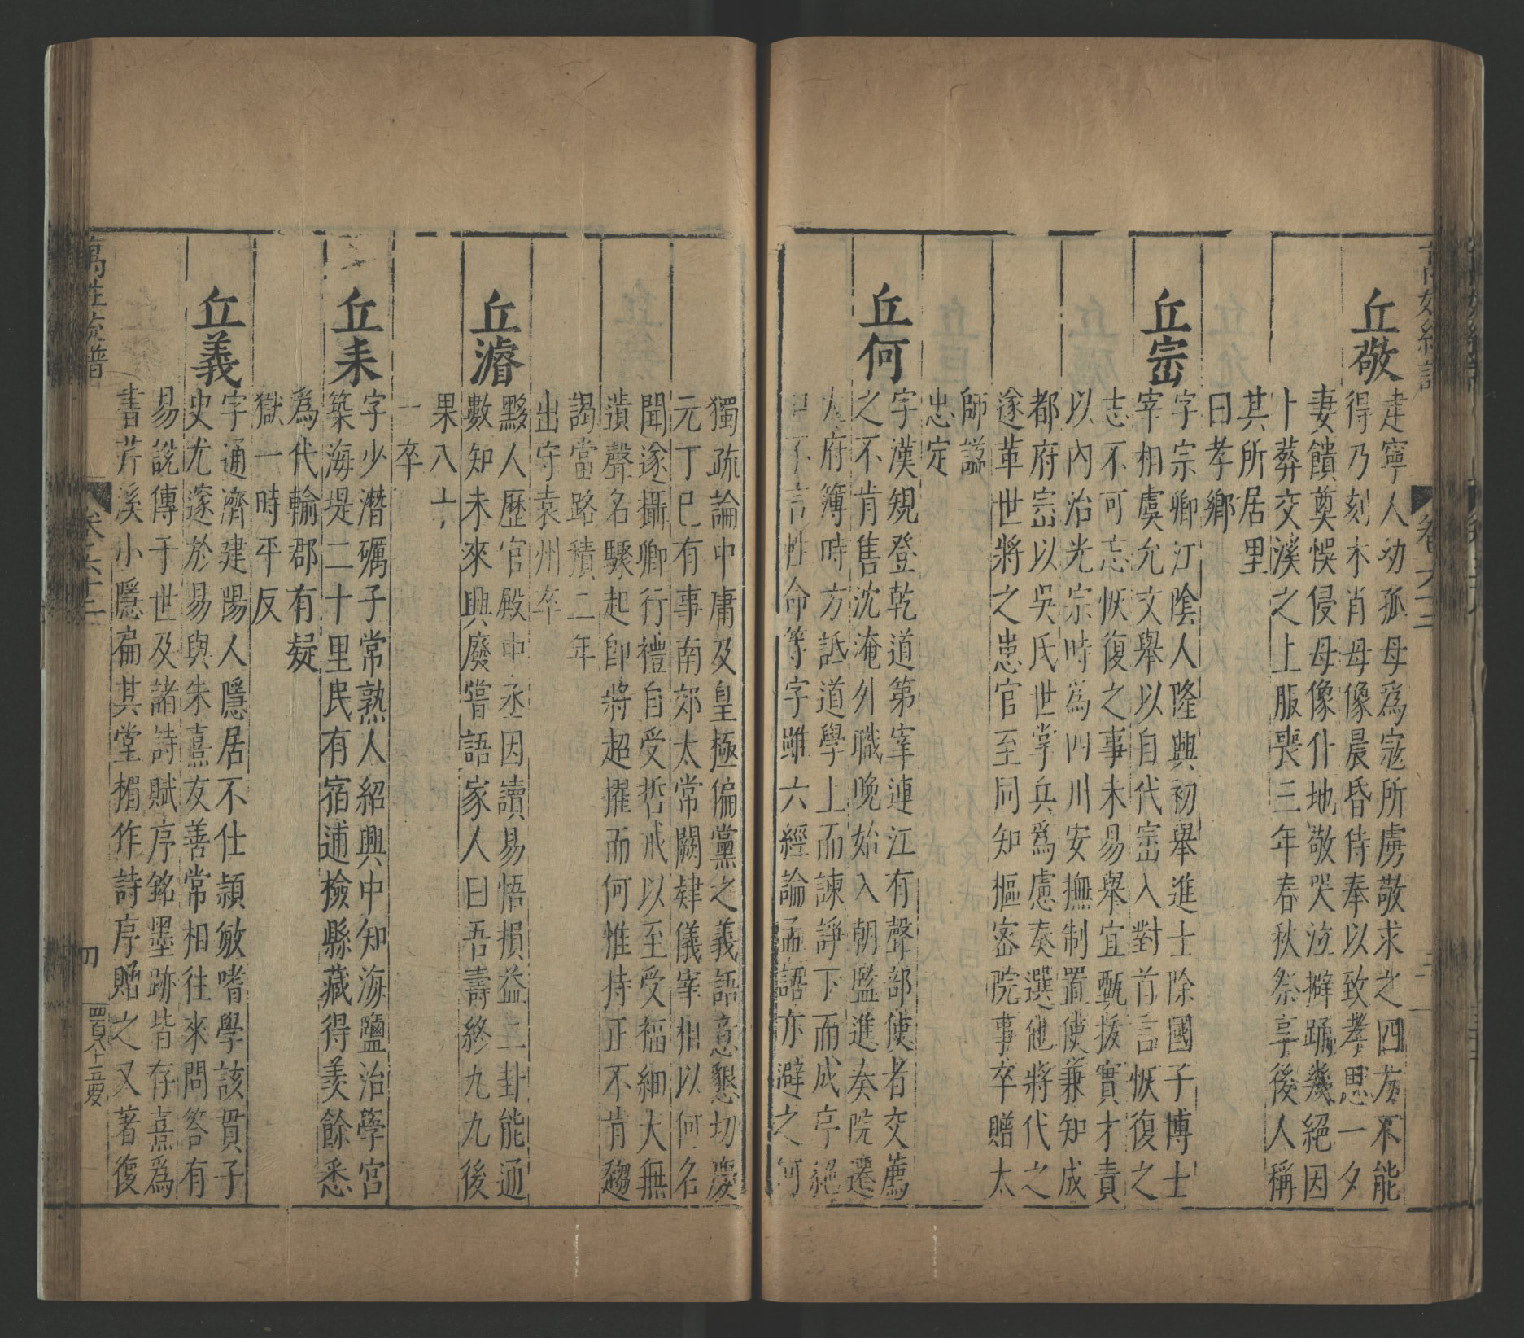 丘敬
建寧人幼孤母爲寇所虜敬求之四方不能
得乃刻木肖母像晨昏侍奉以致孝思一夕
妻饋奠悞侵母像仆地敬哭泣擗踊幾絕因
卜葬交溪之上服喪三年春秋祭享後人稱
其所居里
曰孝鄉
丘崈
字宗卿江陰人隆興初舉進士除國子博士
宰相虞允文舉以自代崈入對首言恢復之
志不可忘恢復之事未易舉宜甄拔實才責
以內治光宗時爲四川安撫制置使兼知成
都府崈以吳氏世掌兵爲慮奏選他將代之
遂革世將之患官至同知樞密院事卒贈太
師諡
忠定
丘何
字漢規登乾道第宰連江有聲部使者交薦
之不肯售沈淹外職晚始入朝監進奏院遷
大府簿時方詆道學上而諫諍下而成亭絕
口不言性命等字雖六經論孟語亦避之何
獨疏論中庸及皇極偏黨之義語意懇切慶
元丁巳有事南郊太常闕肄儀宰相以何名
聞遂攝卿行禮自受誓戒以至受福細大無
潰聲名驟起卽將超擢而何惟持正不肯趨
謁當路積二年
出守袁州卒
丘濬
黟人歷官殿中丞因讀易悟損益二卦能通
數知未來興廢嘗語家人曰吾壽終九九後
果八十
一卒
丘耒
字少潛礪子常熟人紹興中知海鹽治學宮
築海堤二十里民有宿逋檢縣藏得羨餘悉
爲代輸郡有疑
獄一時平反
丘義
字通濟建陽人隱居不仕頴敏嗜學該貫子
史尤邃於易與朱熹友善常相往來問答有
易說傳于世及諸詩賦序銘墨跡皆存熹爲
書芹溪小隱扁其堂揭作詩序贈之又著復
萬姓統譜
卷六十二
四